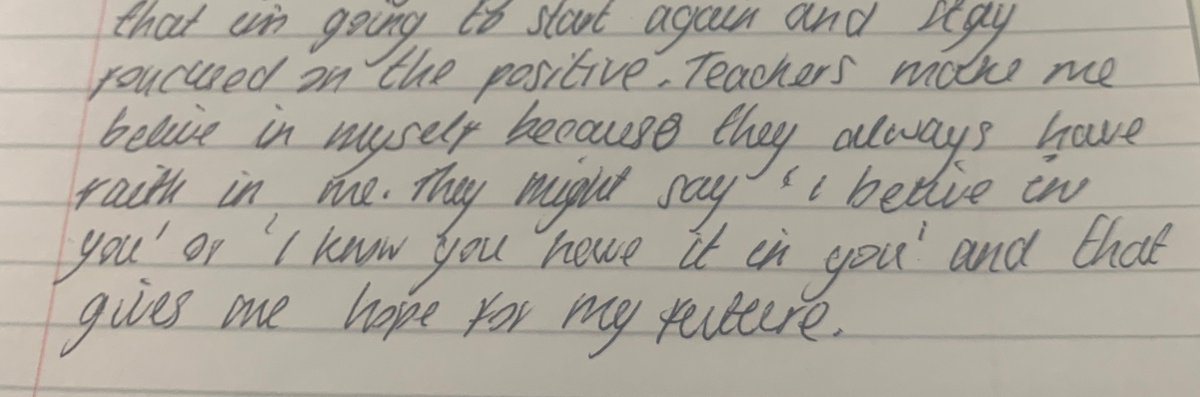 that im going to start again and stay
foucused on the positive. Teachers make me
belive in myself because they always have
faith in me. They might say 'i belive in
you' or 'I know you have it in you' and that
gives me hope for my future.